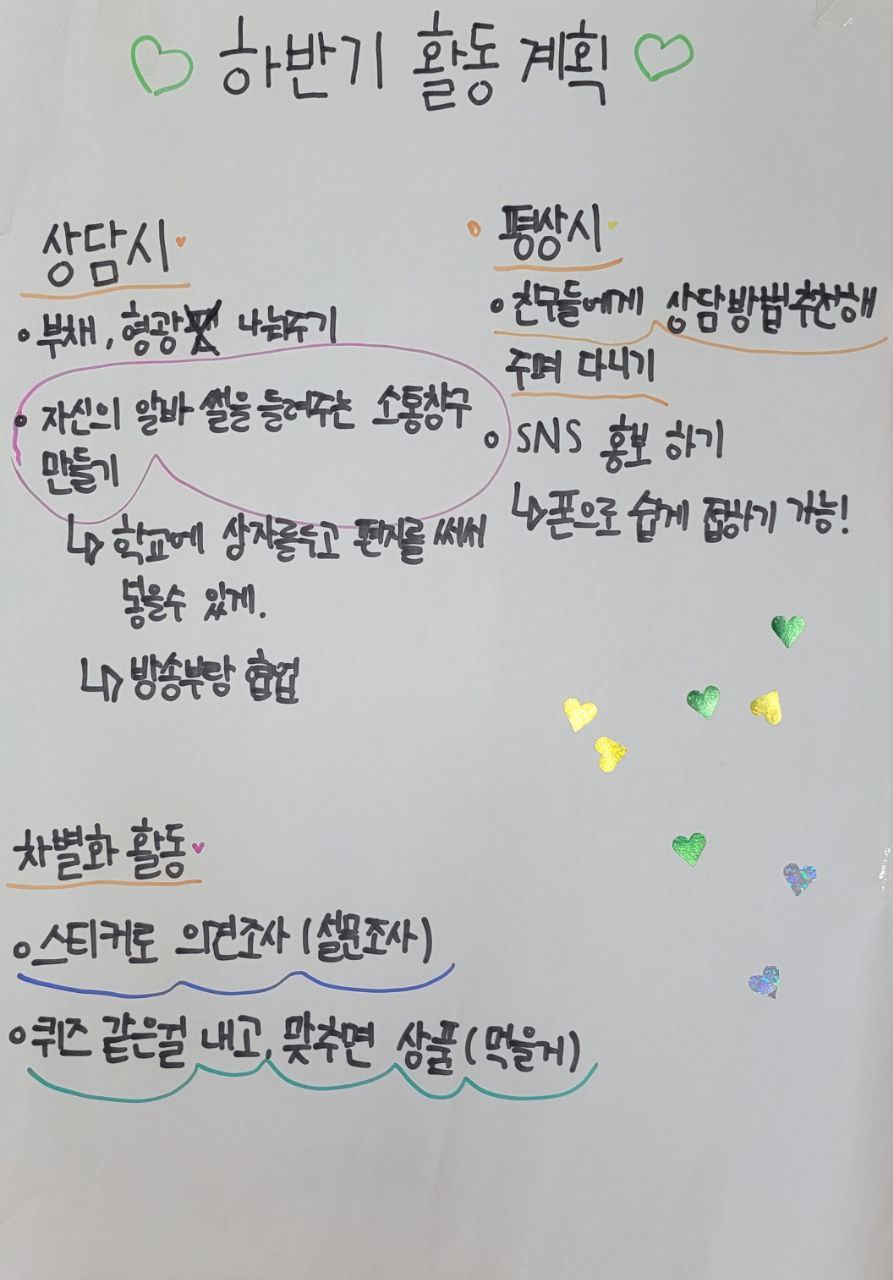 하반기 활동 계획
상담시
부채, 형광펜 나눠주기
자신의 알바 썰을 들려주는 소통창구
만들기
↳ 학교에 상자를두고 편지를 써서
넣을수 있게.
↳ 방송부랑 협업
평상시
친구들에게 상담방법추천해
주며 다니기
SNS 홍보 하기
↳ 폰으로 쉽게 접하기 가능!
차별화 활동
스티커로 의견조사 (설문조사)
퀴즈 같은걸 내고, 맞추면 상품 (먹을거)